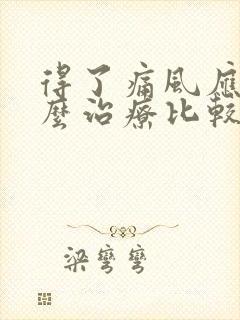 得了痛風應
麼治療比較
梁彎彎